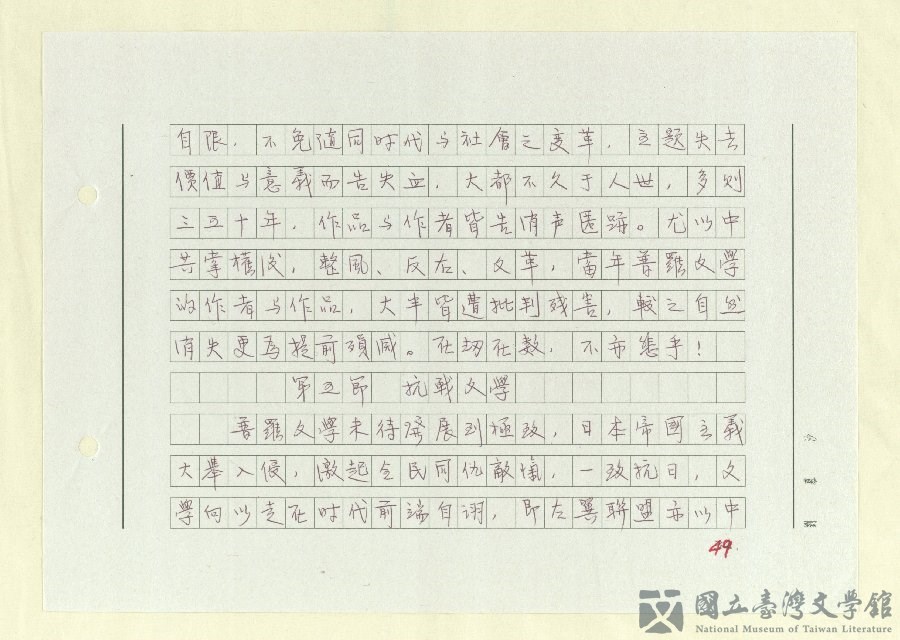 自限，不免隨同时代与社會之变革，主题失去
價值与意義而告失血，大都不久于人世，多则
三五十年，作品与作者皆告消声匿跡。尤以中
共掌權後，整風、反右、文革，當年普羅文學
的作者与作品，大半皆遭批判残害，較之自然
消失更為提前殞滅。在劫在数，不亦悲乎！
第五節 抗戰文學
普羅文學未待發展到極致，日本帝國主義
大舉入侵，激起全民同仇敵愾，一致抗日，文
學向以走在时代前端自詡，即左翼聯盟亦以中
49
國立臺灣文學館
National Museum of Taiwan Literature